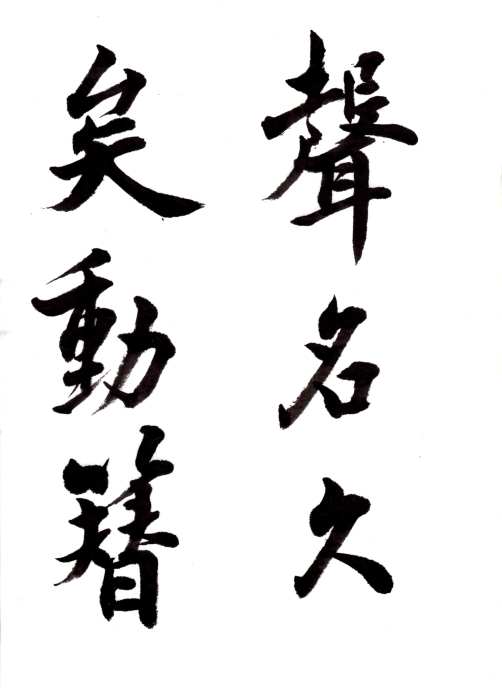 聲名久
矣動簪